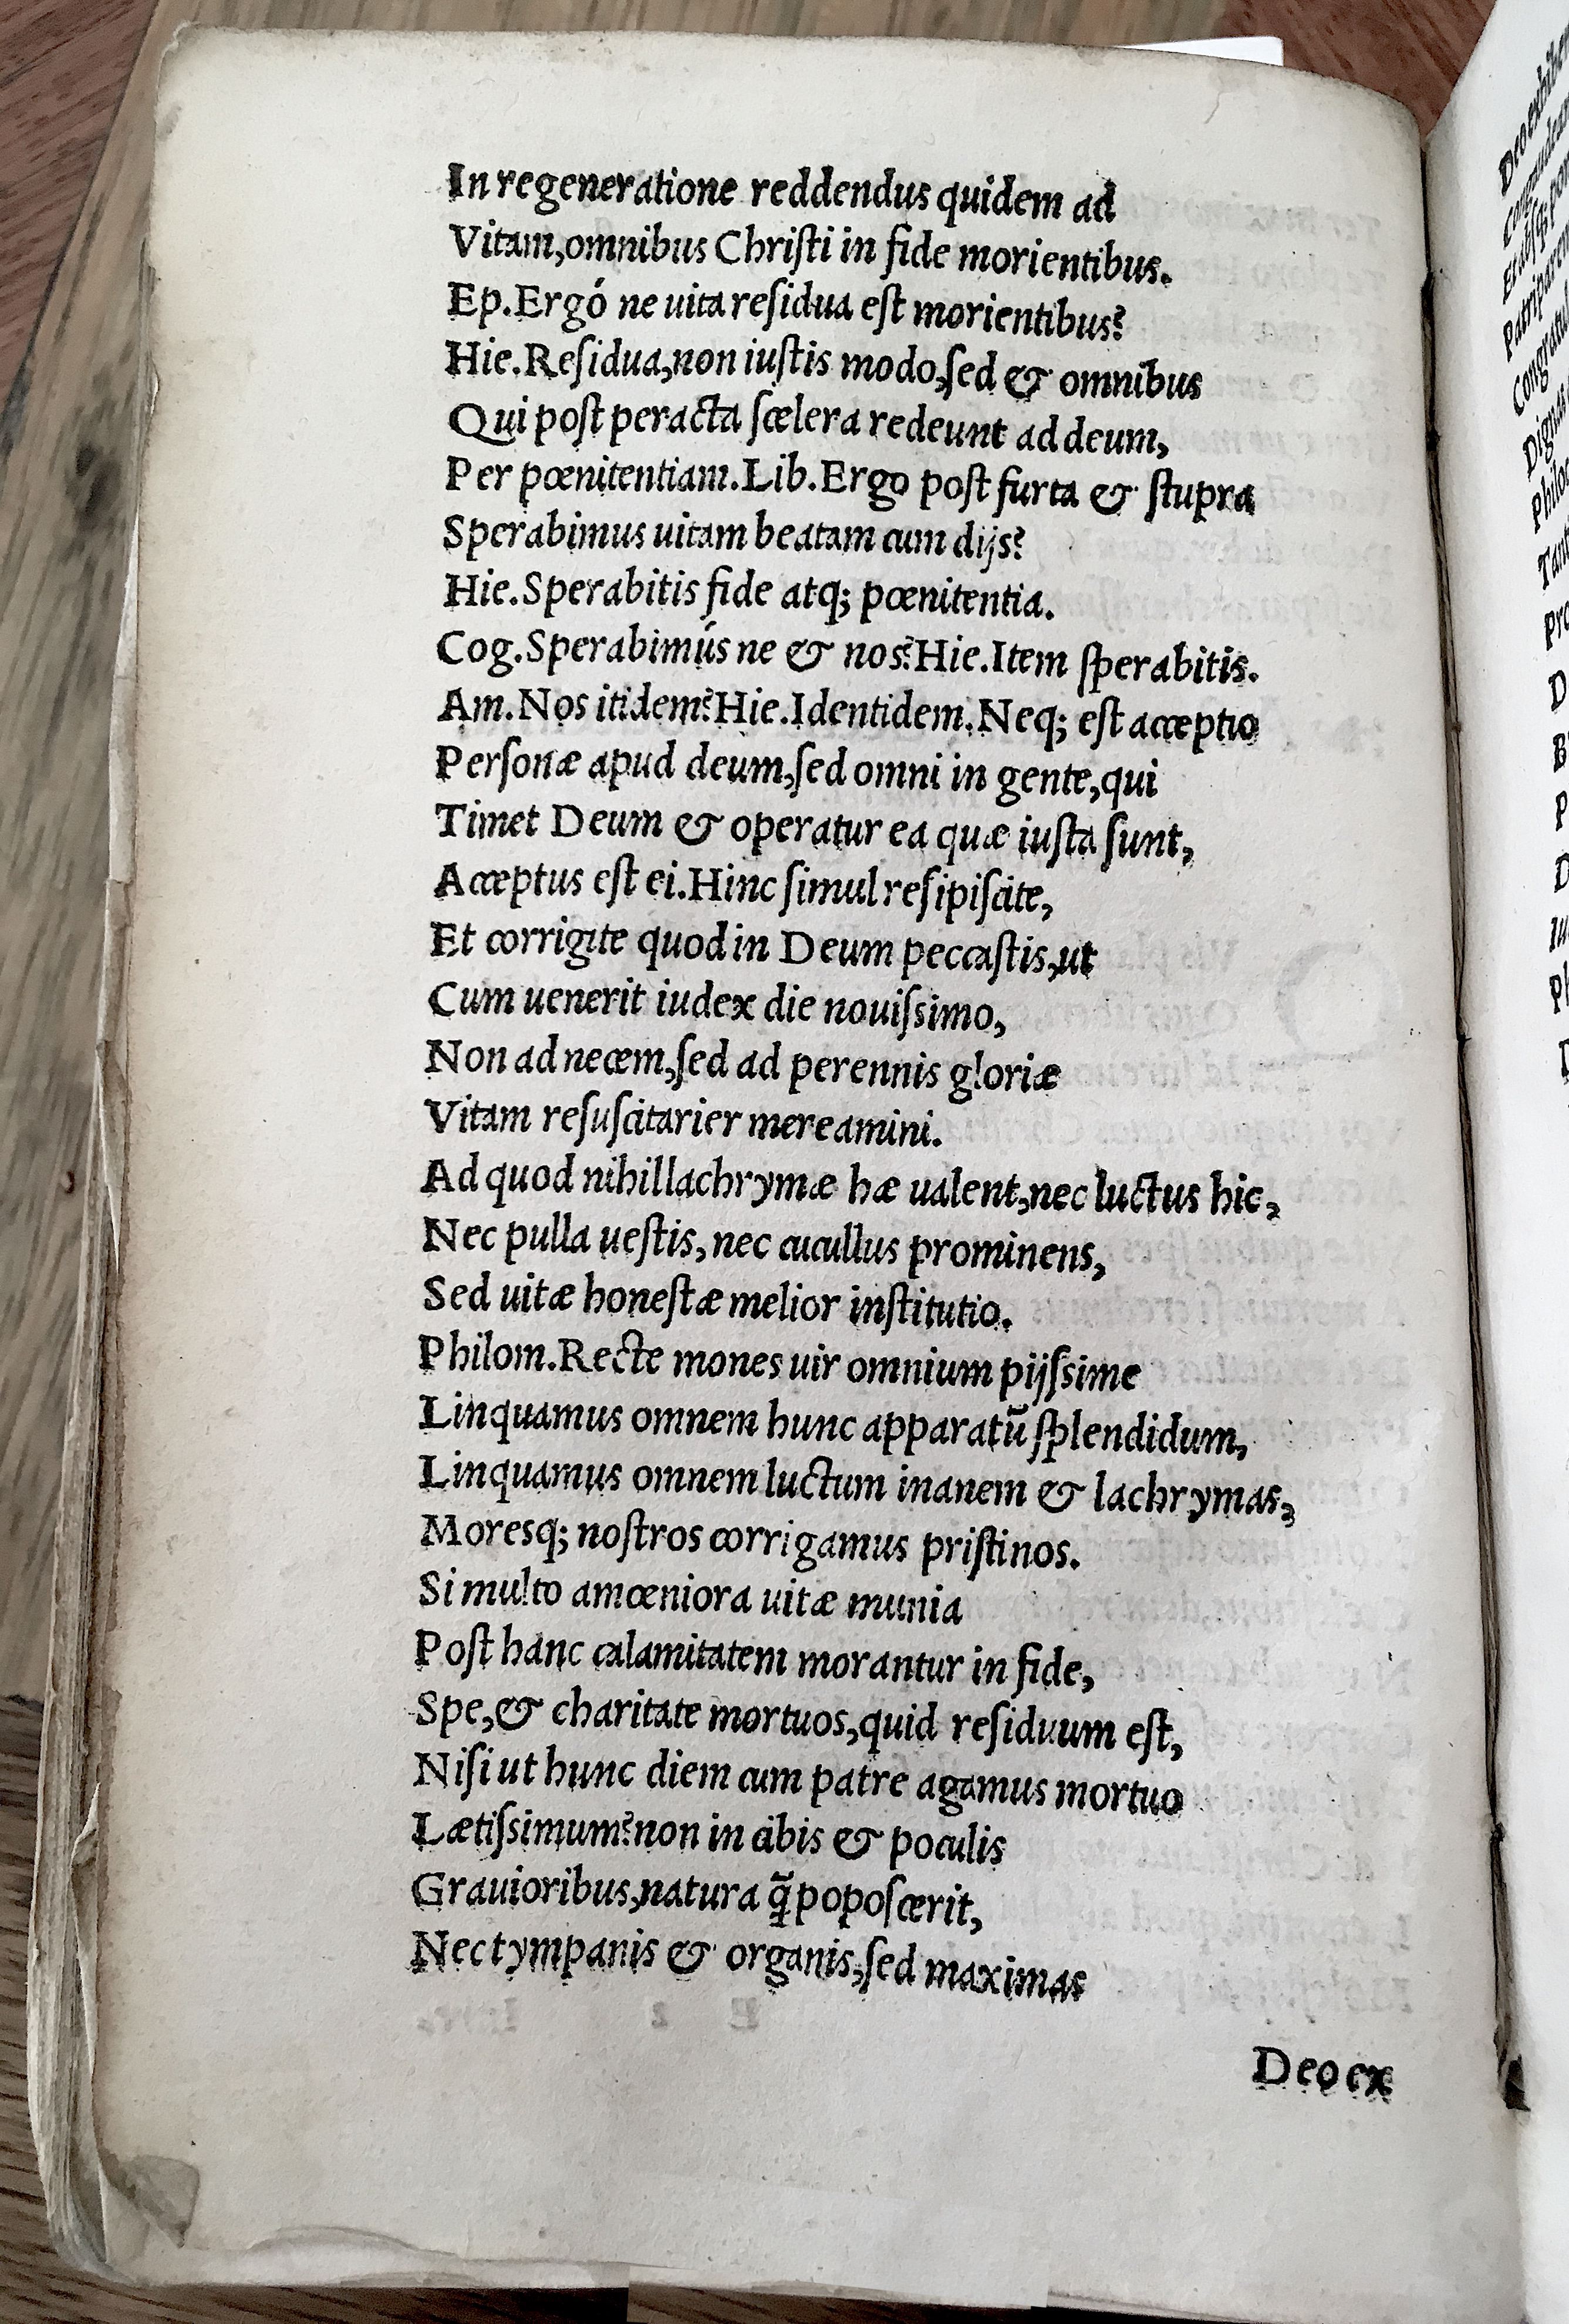 In regeneratione reddendus quidem ad
Vitam,omnibus Chriſti in fide morientibus.
Ep.Ergó ne uita reſidua eſt morientibus?
Hie.Reſidua,non iuſtis modo,ſed & omnibus
Qui poſt peracta ſcelera redeunt ad deum,
Per pœnitentiam.Lib.Ergo poſt furta & ſtupra
Sperabimus uitam beatam cum dijs?
Hie.Sperabitis fide atq; pœnitentia.
Cog.Sperabimús ne & nos?Hie.Item ſperabitis.
Am.Nos itidem?Hie.Identidem.Neq; eſt acceptio
Perſonæ apud deum,ſed omni in gente,qui
Timet Deum & operatur ea quæ iuſta ſunt,
Acceptus eſt ei.Hinc ſimul reſipiſcite,
Et corrigite quod in Deum peccaſtis,ut
Cum uenerit iudex die nouiſsimo,
Non ad necem,ſed ad perennis gloriæ
Vitam reſuſcitarier mereamini.
Ad quod nihil lachrymæ hæ ualent,nec luctus hic,
Nec pulla ueſtis, nec cucullus prominens,
Sed uitæ honeſtæ melior inſtitutio.
Philom.Recte mones uir omnium pijſsime
Linquamus omnem hunc apparatũ ſplendidum,
Linquamus omnem luctum inanem & lachrymas,
Moresq; noſtros corrigamus priſtinos.
Si multo amœniora uitæ munia
Poſt hanc calamitatem morantur in fide,
Spe,& charitate mortuos,quid reſiduum eſt,
Niſi ut hunc diem cum patre agamus mortuo
Lætiſsimum?non in cibis & poculis
Grauioribus,natura q̃ popoſcerit,
Nec tympanis & organis,ſed maximas
Deo ex